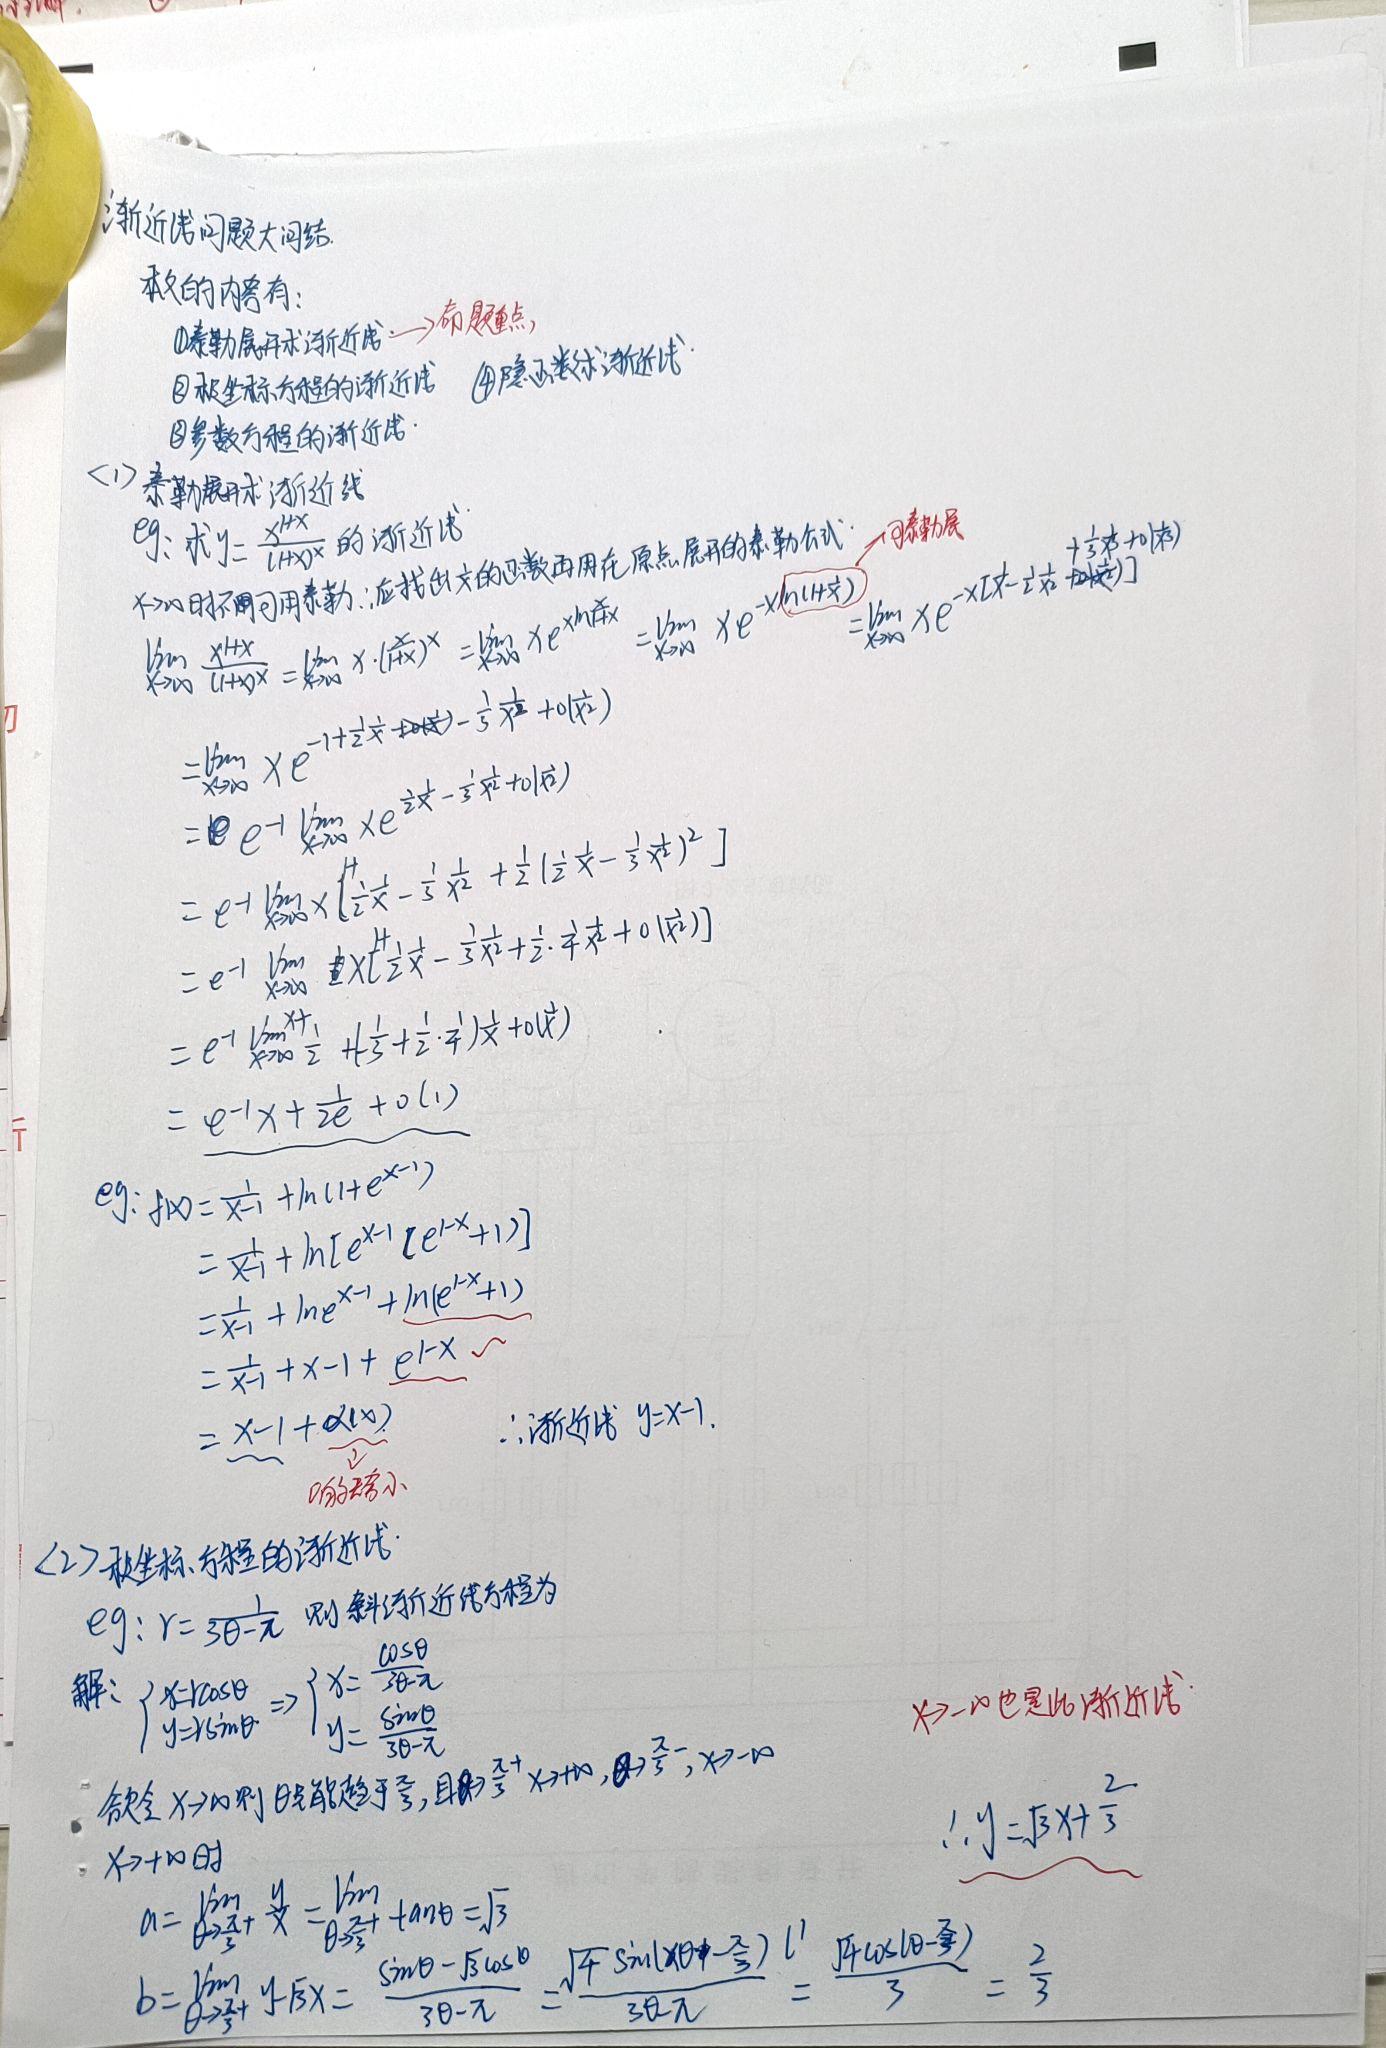 渐近线问题大问结.
本文的内容有:
①泰勒展开求渐近线 → 命题重点,
②极坐标方程的渐近线 ④隐函数求渐近线.
③参数方程的渐近线.
<1> 泰勒展开求渐近线
eg: 求y= x^{1+x}/(1+x)^x 的渐近线.
x→∞时不可用泰勒,∴应找出文的函数再用在原点展开的泰勒公式. → 可泰勒展
lim_{x→∞} x^{1+x}/(1+x)^x = lim_{x→∞} x·(x/(1+x))^x = lim_{x→∞} xe^{xln x/(1+x)} = lim_{x→∞} xe^{-xln(1+1/x)} = lim_{x→∞} xe^{-x[1/x - 1/2 1/x² + 1/3 1/x³ + o(1/x³)]}
= lim_{x→∞} xe^{-1 + 1/2 1/x - 1/3 1/x² + o(1/x²)}
= e^{-1} lim_{x→∞} xe^{1/2 1/x - 1/3 1/x² + o(1/x²)}
= e^{-1} lim_{x→∞} x[1+ 1/2 1/x - 1/3 1/x² + 1/2 (1/2 1/x - 1/3 1/x²)²]
= e^{-1} lim_{x→∞} x[1+ 1/2 1/x - 1/3 1/x² + 1/2 · 1/4 1/x² + o(1/x²)]
= e^{-1} lim_{x→∞} x+ 1/2 +(-1/3 + 1/2 · 1/4) 1/x + o(1/x)
= e^{-1}x + 1/2e + o(1)
eg: f(x) = 1/(x-1) + ln(1+e^{x-1})
= 1/(x-1) + ln[e^{x-1}[e^{1-x}+1)]
= 1/(x-1) + lne^{x-1} + ln(e^{1-x}+1)
= 1/(x-1) + x-1 + e^{1-x}
= x-1 + α(x) ∴渐近线 y=x-1.
<2> 极坐标方程的渐近线.
eg: r= 1/(3θ-π) 则斜渐近线方程为
解: { x=rcosθ y=rsinθ. => { x= cosθ/(3θ-π) y= sinθ/(3θ-π)
x→-∞也是此渐近线.
欲令 x→∞则θ只能趋于π/3, 且θ→π/3⁺ x→+∞, θ→π/3⁻, x→-∞
x→+∞时
∴y=√3x+ 2/3
a= lim_{θ→π/3⁺} y/x = lim_{θ→π/3⁺} tanθ = √3
b= lim_{θ→π/3⁺} y-√3x = (sinθ-√3cosθ)/(3θ-π) = √4 sin(θ-π/3)/(3θ-π) l' = √4cos(θ-π/3)/3 = 2/3